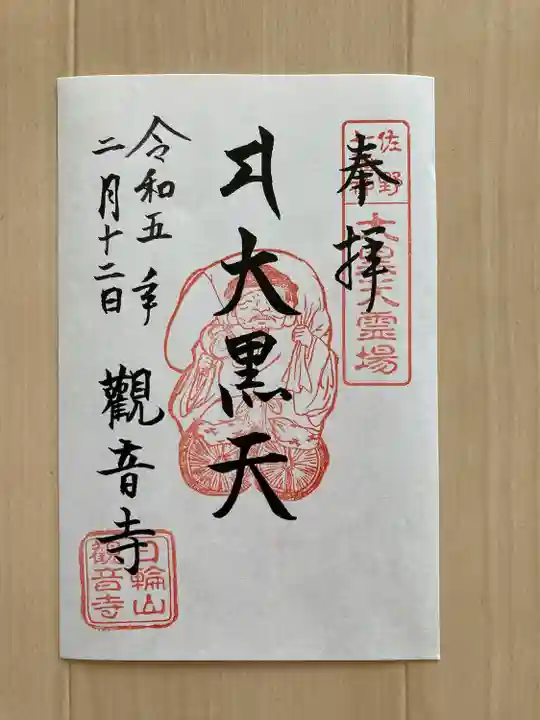 奉拝
佐野
大黒天霊場
大黒天
令和五年
二月十二日
觀音寺
日輪山
觀音寺